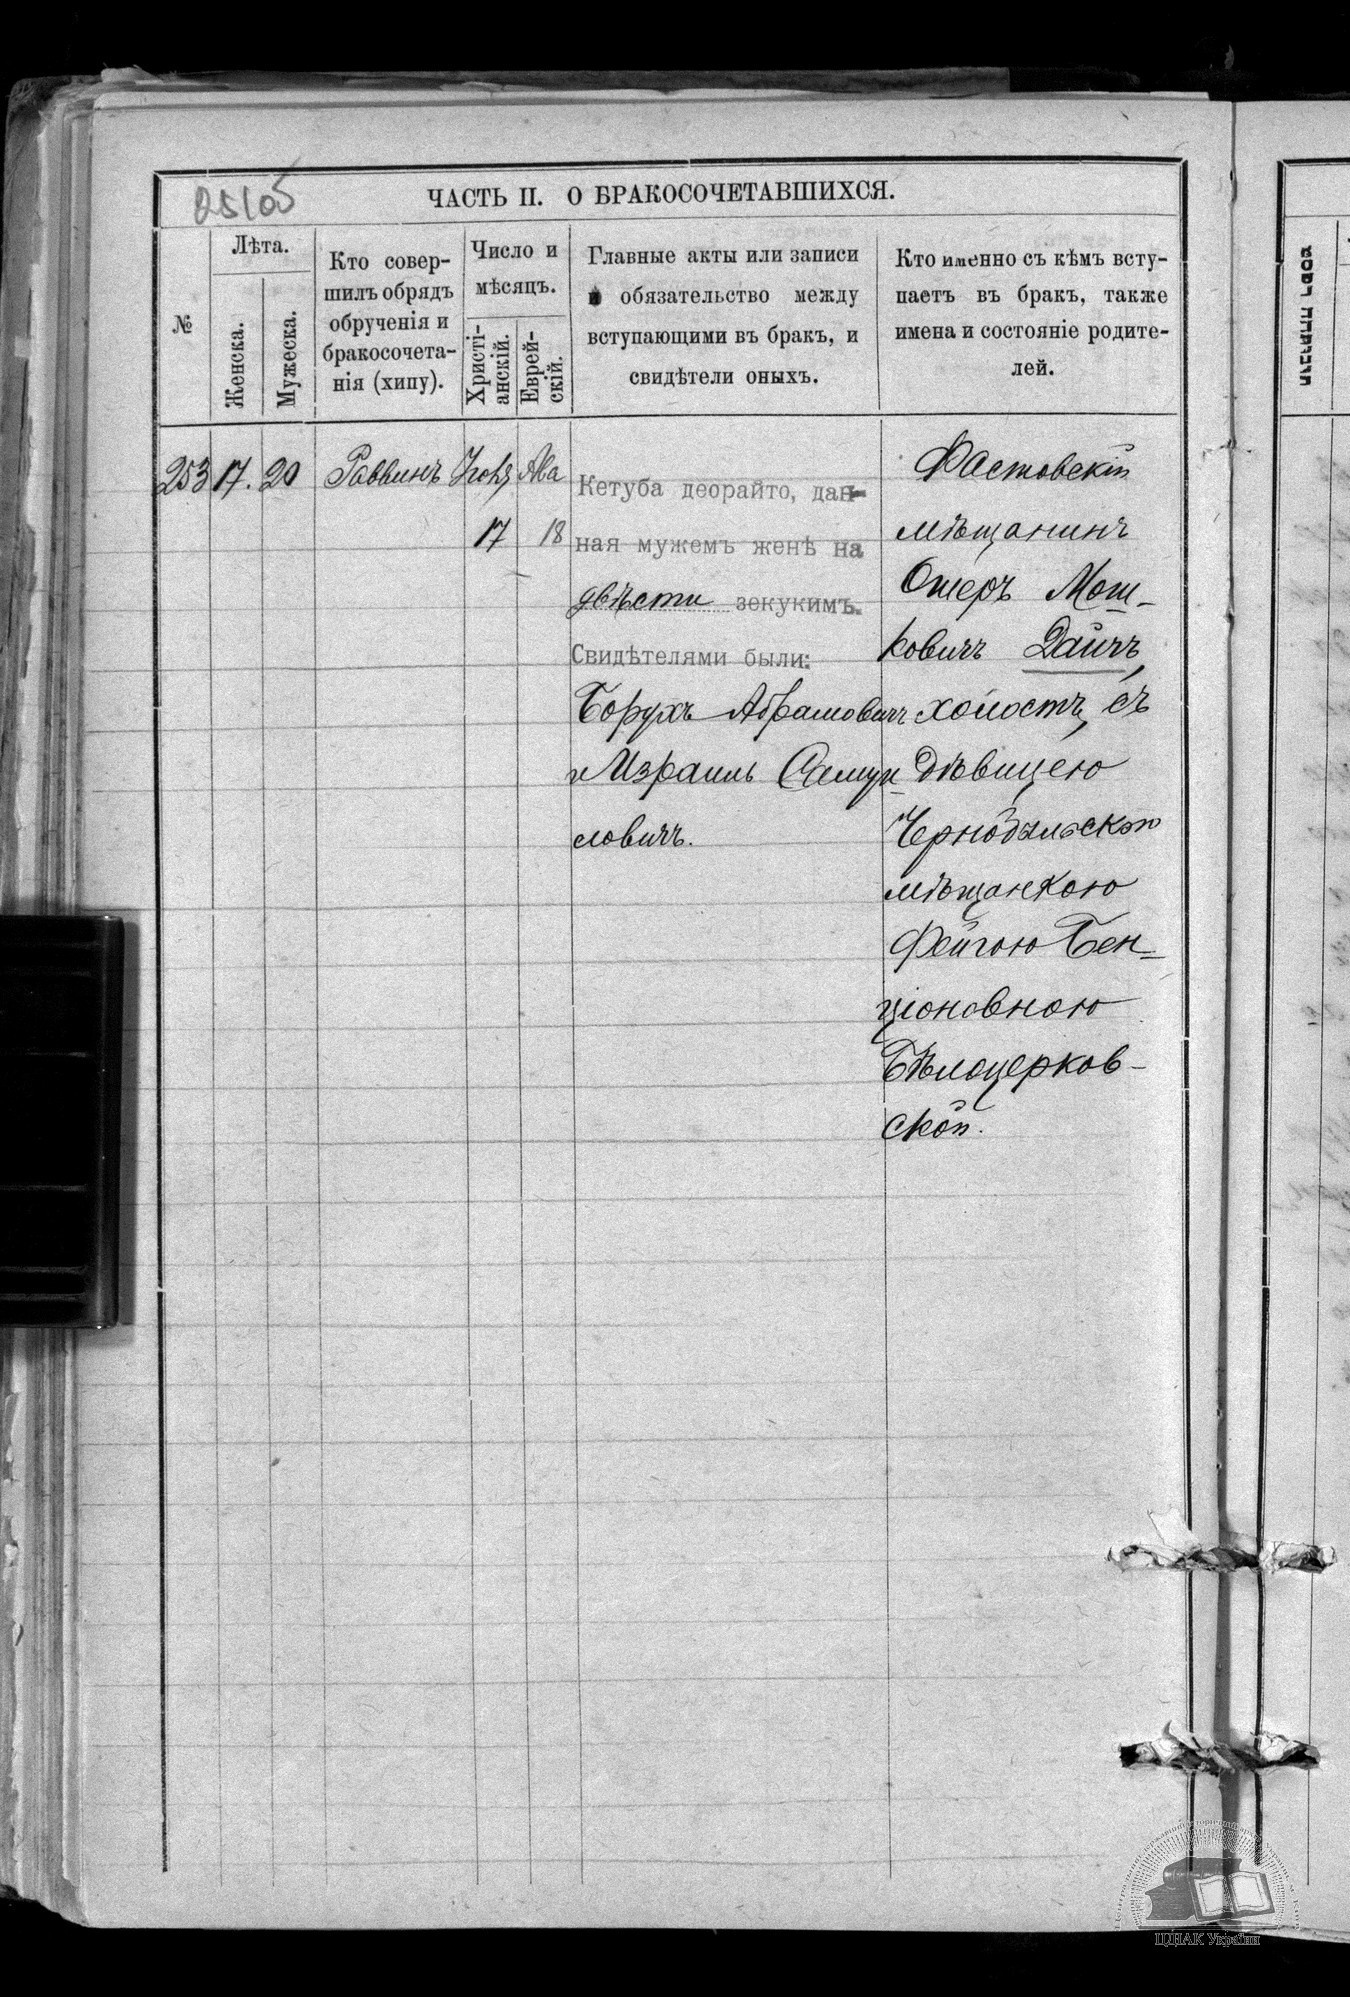 ЧАСТЬ II. О БРАКОСОЧЕТАВШИХСЯ.
№
Лѣта.
Женска.
Мужеска.
Кто совер-
шилъ обрядъ
обрученія и
бракосочета-
нія (хипу).
Число и
мѣсяцъ.
Христі-
анскій.
Еврей-
скій.
Главные акты или записи
и обязательство между
вступающими въ бракъ, и
свидѣтели оныхъ.
Кто именно съ кѣмъ всту-
паетъ въ бракъ, также
имена и состояніе родите-
лей.
253 17. 20 Раввинъ Іюля Ава
17 18
Кетуба деорайто, дан-
ная мужемъ женѣ на
двѣсти зекукимъ.
Свидѣтелями были:
Борухъ Абрамовичъ
и Израиль Самуи-
ловичъ.
Фастовскій
мѣщанинъ
Ошеръ Мош-
ковичъ Дайчъ,
холостъ, съ
дѣвицею
Чернобыльскою
мѣщанкою
Фейгою Бен-
ціоновною
Бѣлоцерков-
ской.
ЦДІАК України